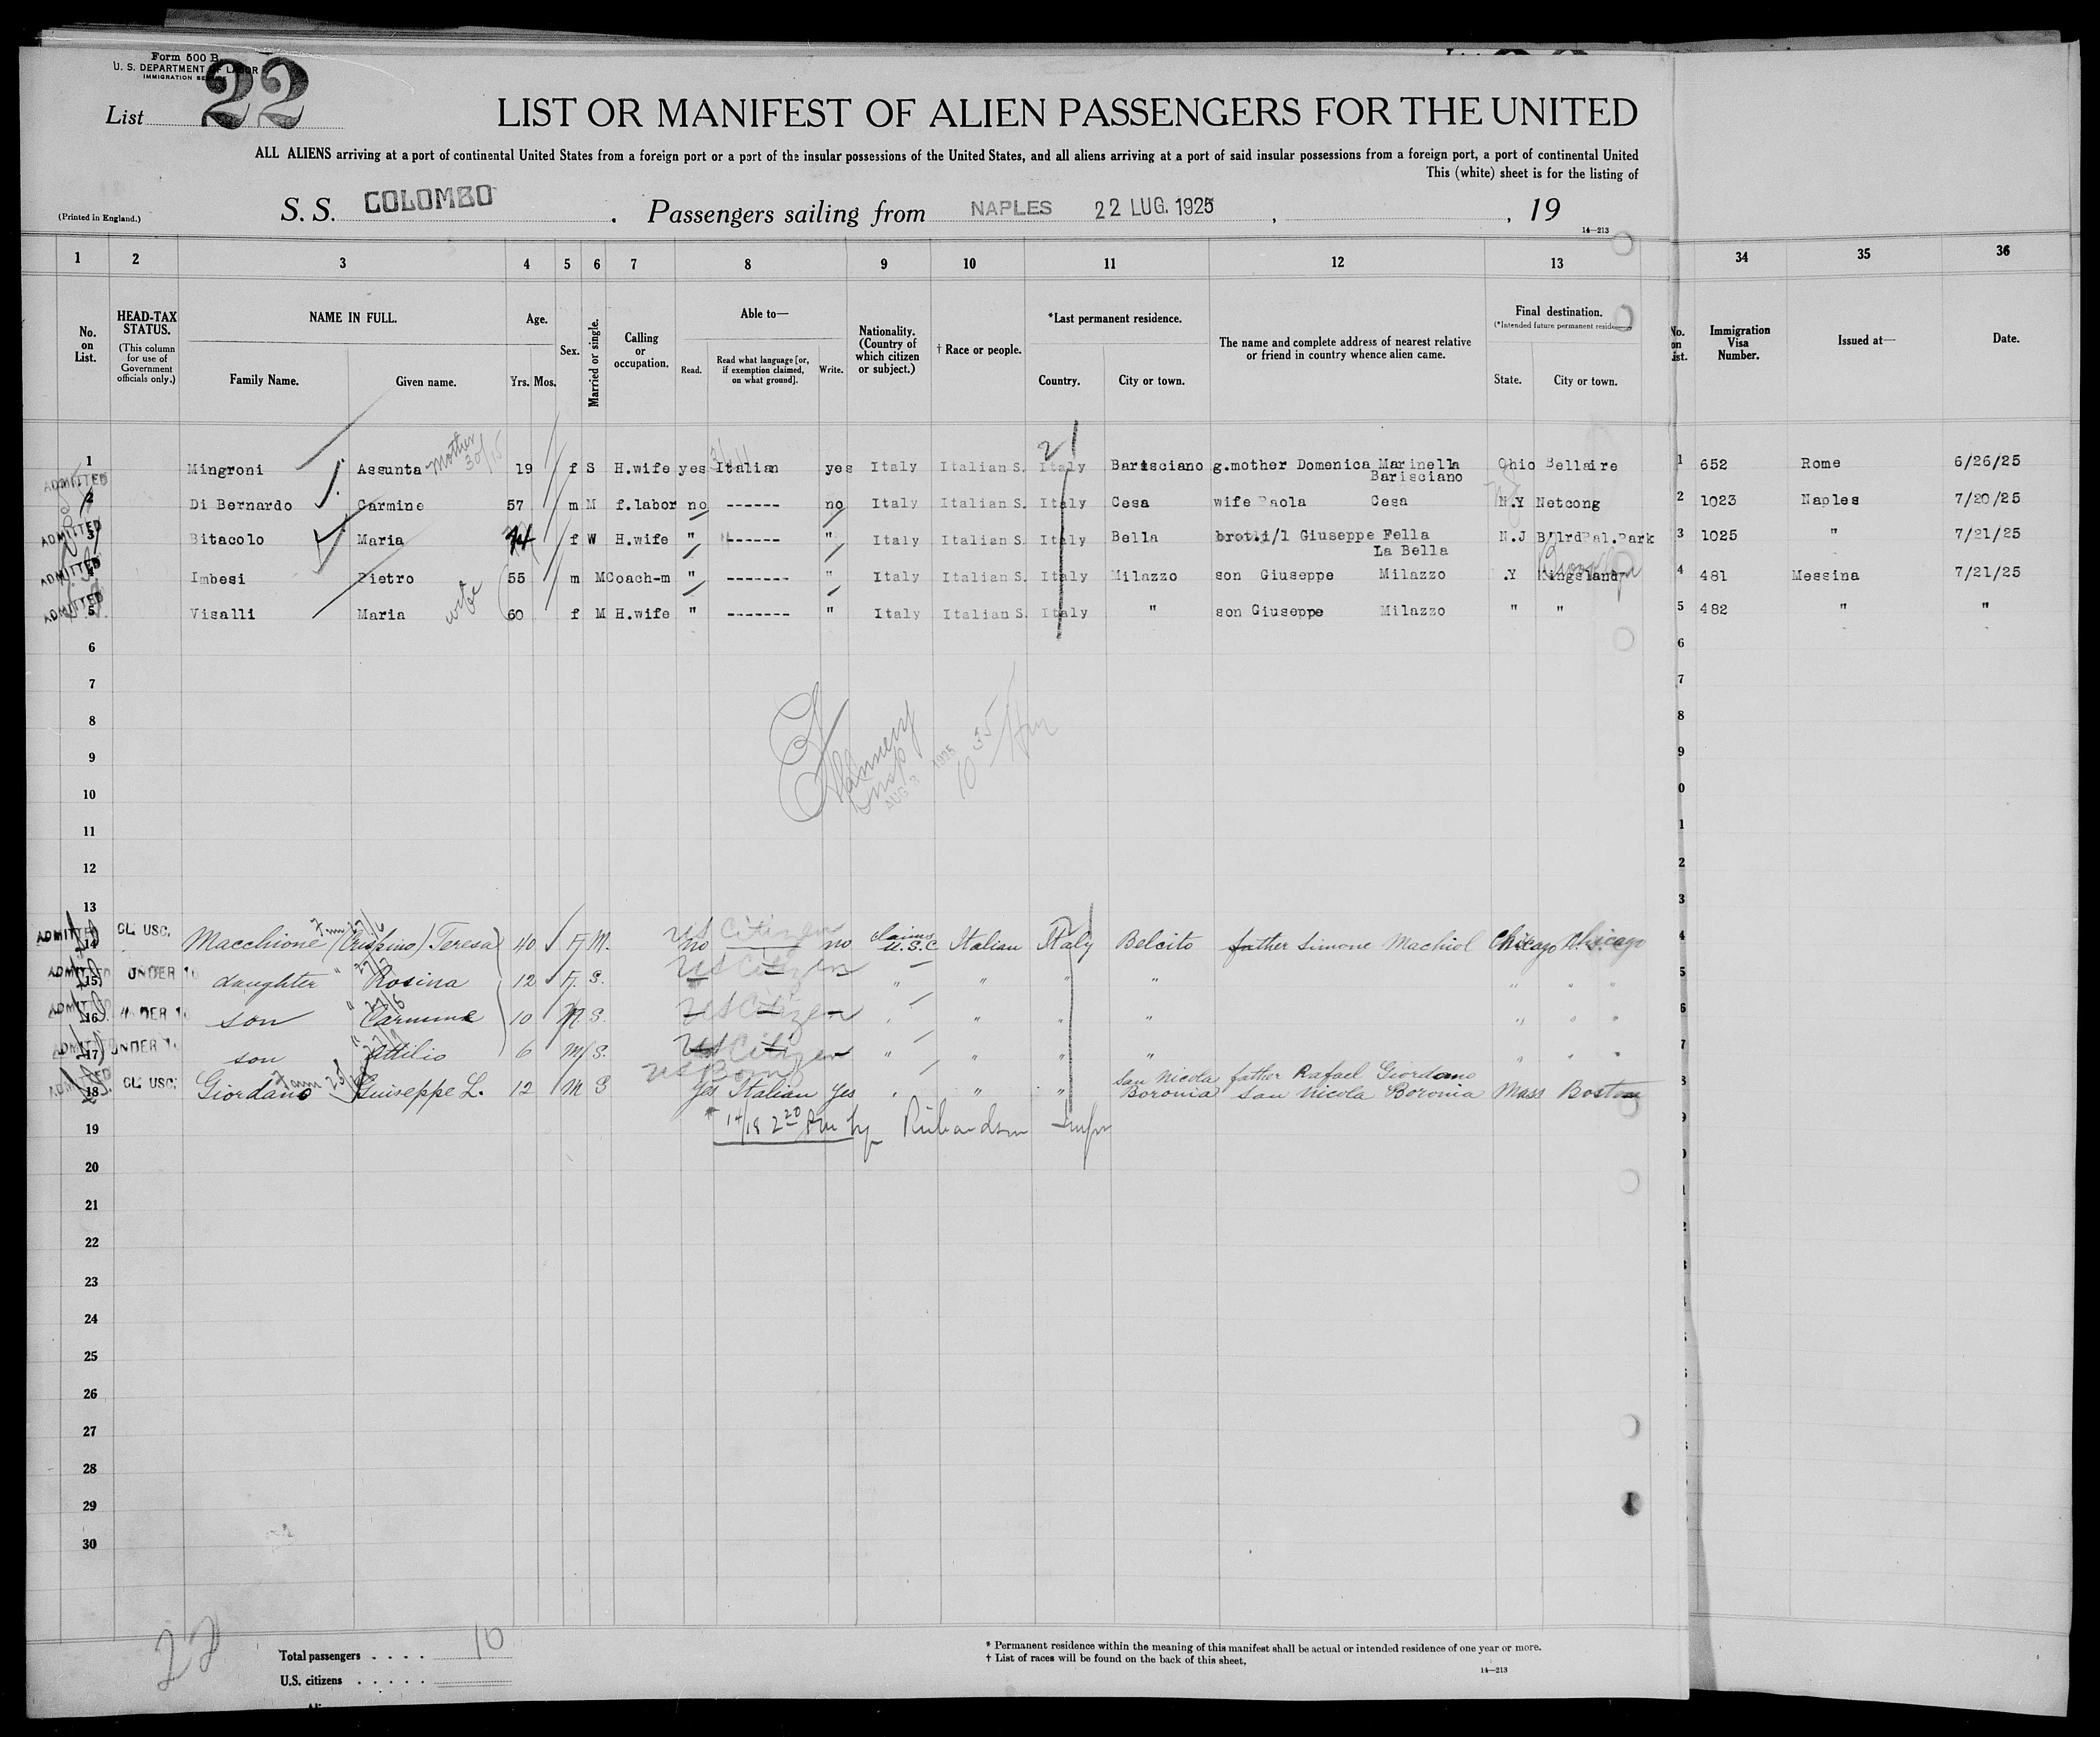 Form 500 B.
U. S. DEPARTMENT OF LABOR
IMMIGRATION SERVICE
List 22
LIST OR MANIFEST OF ALIEN PASSENGERS FOR THE UNITED
ALL ALIENS arriving at a port of continental United States from a foreign port or a port of the insular possessions of the United States, and all aliens arriving at a port of said insular possessions from a foreign port, a port of continental United
This (white) sheet is for the listing of
(Printed in England.) S. S. COLOMBO . Passengers sailing from NAPLES 22 LUG. 1925 , , 19
14—213
1 2 3 4 5 6 7 8 9 10 11 12 13 34 35 36
No. on List. HEAD-TAX STATUS. (This column for use of Government officials only.) NAME IN FULL. Family Name. Given name. Age. Yrs. Mos. Sex. Married or single. Calling or occupation. Able to— Read. Read what language [or, if exemption claimed, on what ground]. Write. Nationality. (Country of which citizen or subject.) † Race or people. *Last permanent residence. Country. City or town. The name and complete address of nearest relative or friend in country whence alien came. Final destination. (*Intended future permanent State. City or town. Immigration Visa Number. Issued at— Date.
mother 30/15
1 ADMITTED Mingroni Assunta 19 f S H.wife yes Italian yes Italy Italian S. Italy Barisciano g.mother Domenica Marinella Barisciano Ohio Bellaire 1 652 Rome 6/26/25
2 Di Bernardo Carmine 57 m M f.labor no ------ no Italy Italian S. Italy Cesa wife Paola Cesa N.Y Netcong 2 1023 Naples 7/20/25
ADMITTED 3 Bitacolo Maria f W H.wife " ------ " Italy Italian S. Italy Bella Giuseppe Fella La Bella N.J Park 3 1025 " 7/21/25
ADMITTED 4 Imbesi Pietro 55 m M Coach-m " ------- " Italy Italian S. Italy Milazzo son Giuseppe Milazzo .Y Kingsland Brooklyn 4 481 Messina 7/21/25
ADMITTED 5 Visalli Maria wife 60 f M H.wife " ------- " Italy Italian S. Italy " son Giuseppe Milazzo " " 5 482 " "
6 6
7 7
8 8
9 9
10 0
11 1
12 2
13 3
Flannery
Insp
AUG 3 1925
10 35
ADMITTED 14 CL USC. Macchione (Crispino) Teresa 40 F. M. US Citizen no no claims U.S.C Italian Italy Belcito father Simone Machiol Chicago Chicago 4
15 UNDER 16 daughter " Rosina 12 F. S. US Citizen " " " " " " " 5
16 son " Carmine 10 M. S. US Citizen " " " " " " " 6
17 UNDER 16 son " Attilio 6 M S. US Citizen " " " " " " " 7
18 CL USC. Giordano Guiseppe L. 12 M S US Born yes Italian yes " " " San Nicola Boronia father Rafael Giordano San Nicola Boronia Mass Boston 8
14/18 2 20 PM by Richardson Insp
19
20
21
22
23
24
25
26
27
28
29
30
22
Total passengers . . . . 10
U.S. citizens . . . . .
* Permanent residence within the meaning of this manifest shall be actual or intended residence of one year or more.
† List of races will be found on the back of this sheet.
14—213